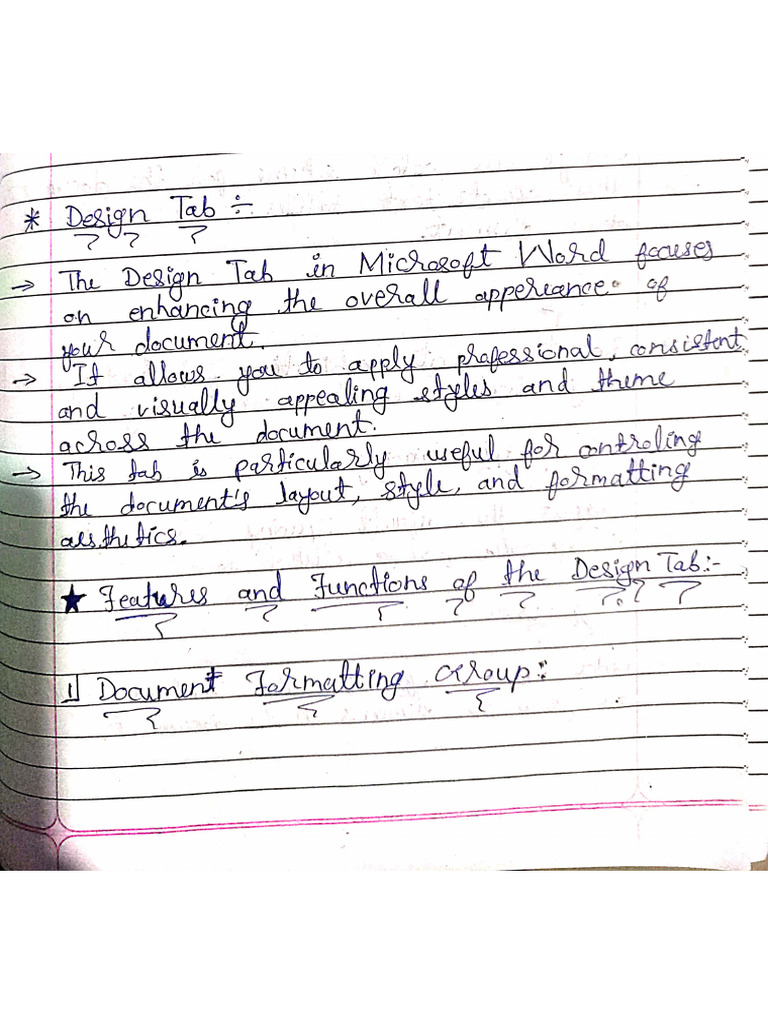 * Design Tab ÷
→ The Design Tab in Microsoft Word focuses
on enhancing the overall appereance of
your document.
→ It allows you to apply professional, consistent
and visually appealing styles and theme
across the document.
→ This tab is particularly useful for controling
the document's layout, style, and formatting
aesthetics.
★ Features and Functions of the Design Tab:-
1] Document Formatting Group: